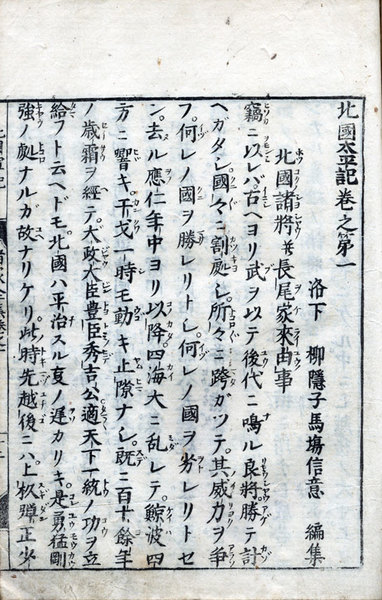 北國太平記卷之第一
洛下 柳隱子馬場信意 編集
北國諸將并長尾家來由事
竊ニ以レバ古ヘヨリ武ヲ以テ後代ニ鳴ル良將勝テ計
ヘガタシ國々ニ割處シ所々ニ跨ガツテ其威力ヲ爭
フ何レノ國ヲ勝レリトシ何レノ國ヲ劣レリトセ
ン去ル應仁年中ヨリ以降四海大ニ乱レテ鯨波四
方ニ響キ干戈一時モ動キ止隙ナシ既ニ百十餘年
ノ歳霜ヲ經テ大政大臣豊臣秀吉公適天下一統ノ功ヲ立
給フト云ヘドモ北國ハ平治スル亥ノ遲カリキ是勇猛剛
強ノ處ナルガ故ナリケリ此時先越後ニハ上杦彈正少